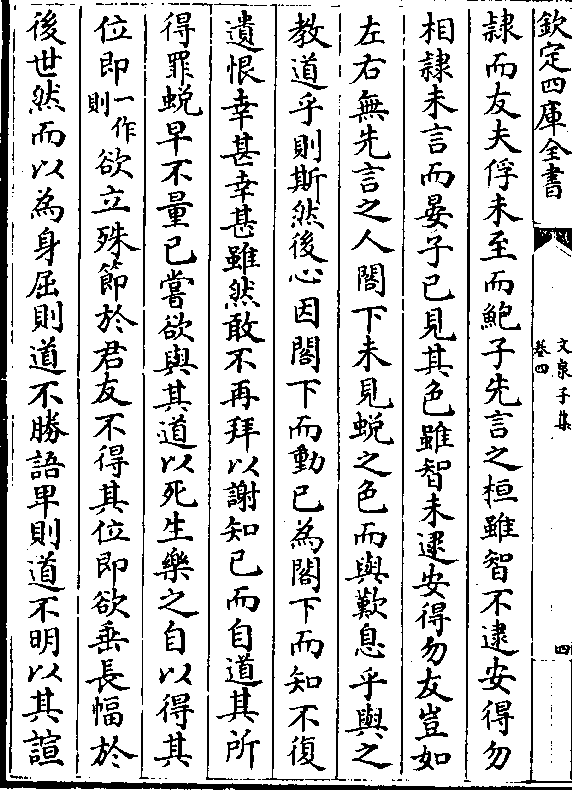 欽定四庫全書
文泉子集
卷四
四
隷而友夫俘未至而鮑子先言之桓雖智不逮安得勿
相隷未言而晏子已見其色雖智未逮安得勿友豈如
左右無先言之人閤下未見蜕之色而與歎息乎與之
教道乎則斯然後心因閤下而動已為閤下而知不復
遺恨幸甚幸甚雖然敢不再拜以謝知已而自道其所
得罪蜕早不量已嘗欲與其道以死生樂之自以得其
位即一作則欲立殊節於君友不得其位即欲垂長幅於
後世然而以為身屈則道不勝語卑則道不明以其諠